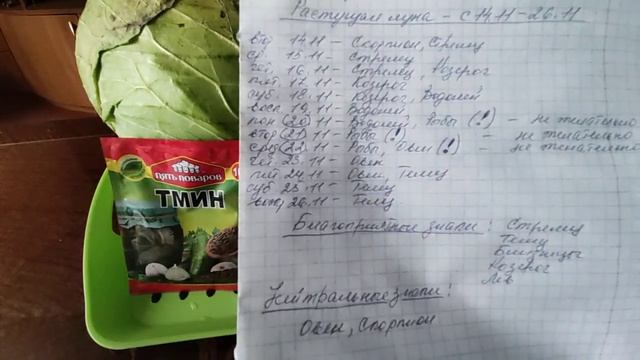 ПЯТЬ ПОВАРОВ
ТМИН
Растущая луна - с 14.11-26.11
втр 14.11 - Скорпион, Стрелец
ср 15.11 - Стрелец
чет 16.11 - Стрелец, Козерог
пят 17.11 - Козерог
суб 18.11 - Козерог, Водолей
воск 19.11 - Водолей
пон (20).11 - Водолей, Рыбы (!) - не желательно
втор (21).11 - Рыбы (!) - не желательно
сред (22).11 - Рыбы, Овен (!) - не желательно
чет 23.11 - Овен
24.11 - Овен, Телец
суб 25.11 - Телец
26.11 - Телец
Благоприятные знаки: Стрелец
Телец
Близнецы
Козерог
Лев
Нейтральные знаки:
Овен, Скорпион